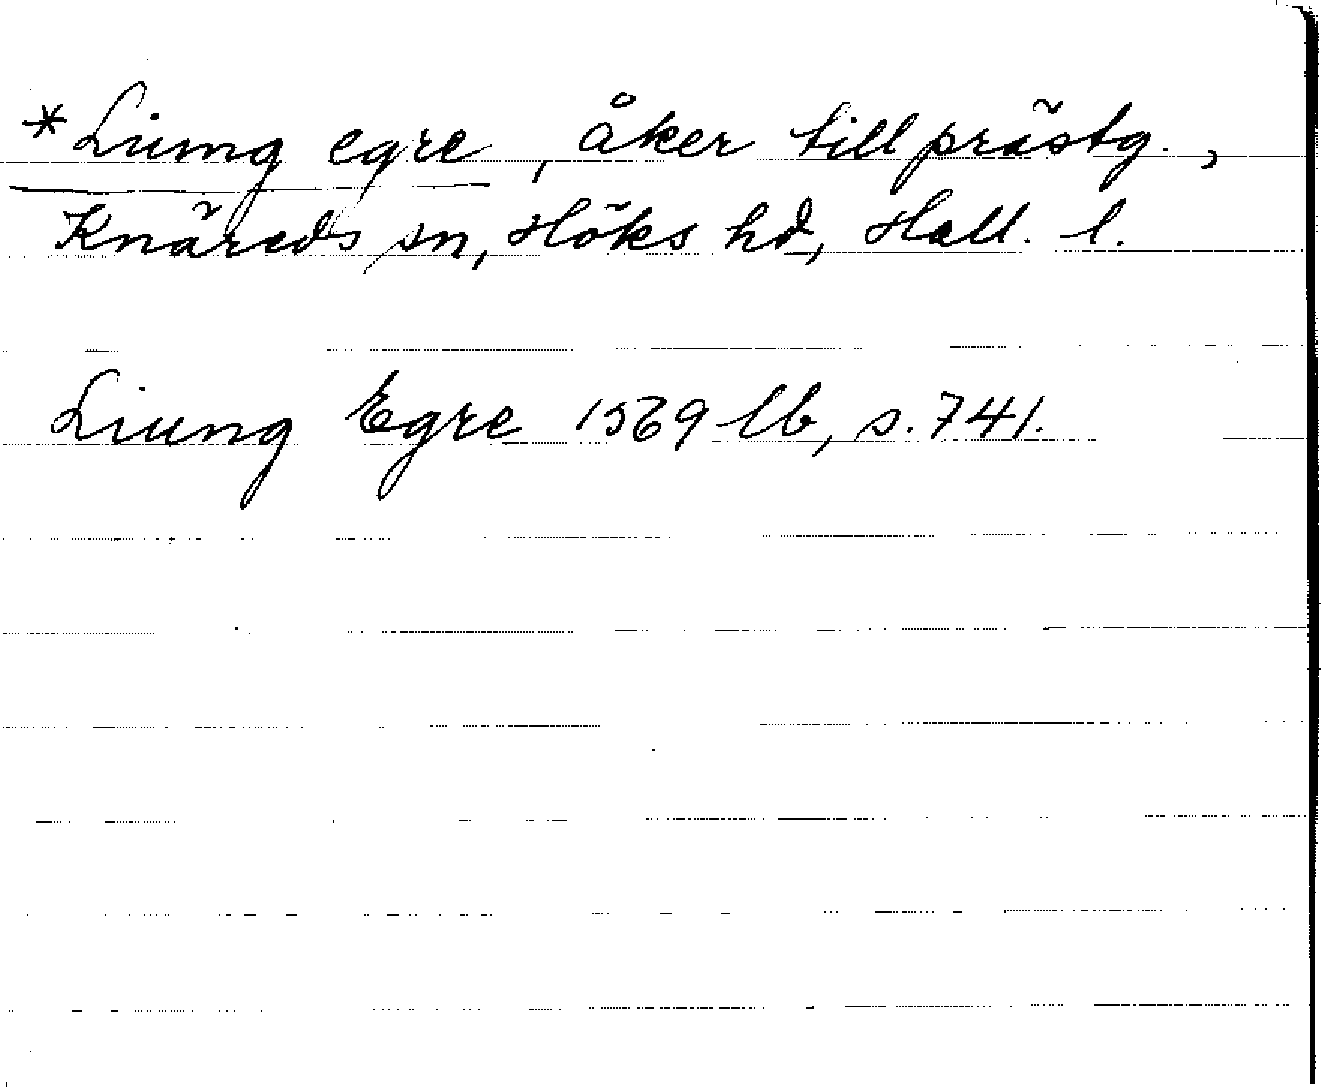 *Liung egre, åker till prästg.,
Knäreds sn, Höks hd, Hall. l.
Liung Egre 1569 lb, s. 741.